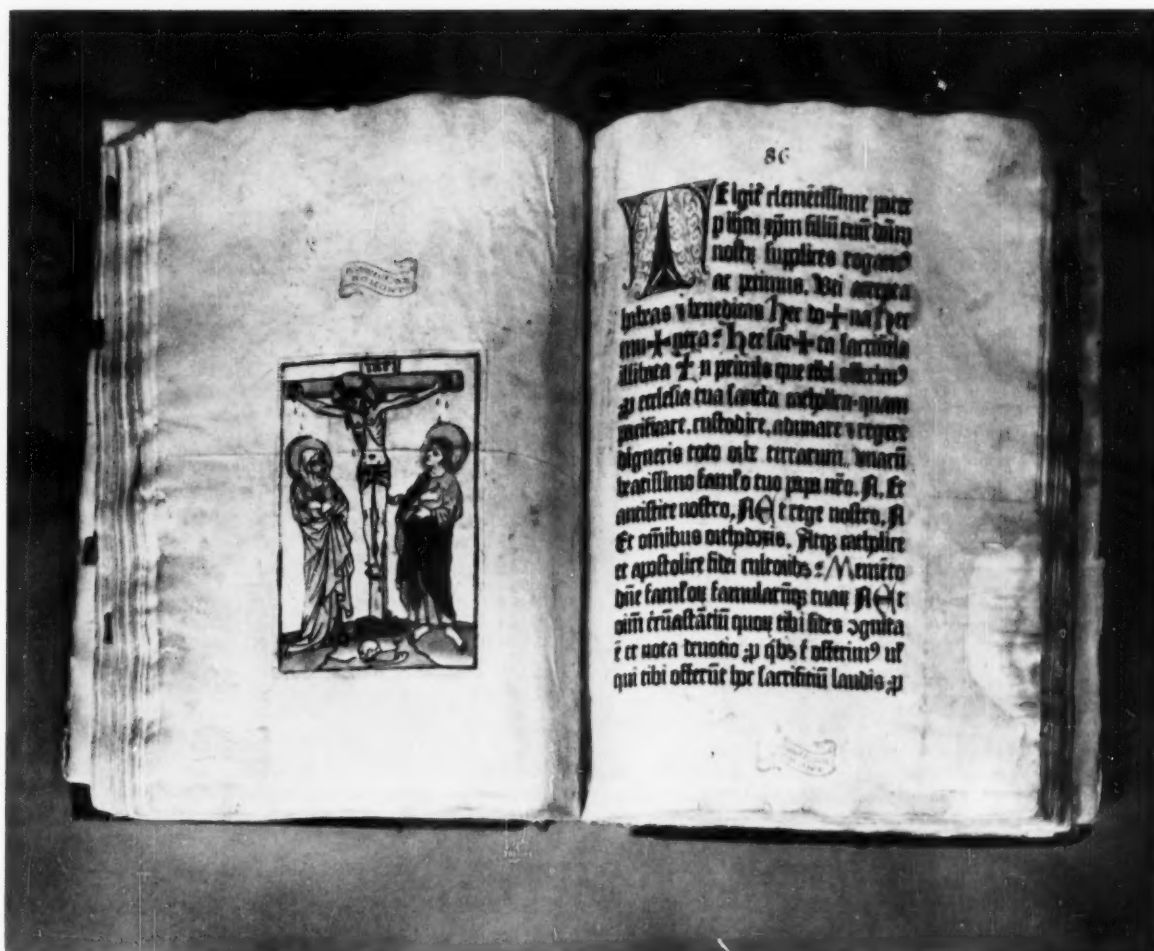 INRI
86
TE igit᷑ clemētissime pater
p ihm xpm filiū tuū dn̄m
nostꝝ supplices rogamꝰ
ac petimus. Vti accepta
habeas ⁊ benedicas Hec do+na Hec
mu+nera: Hec sac+ta sacrificia
illibata + n primis que tibi offerimꝰ
ꝓ ecclesia tua sancta catholica quam
pacificare, custodire, adunare ⁊ regere
digneris toto orbe terrarum, vnacū
beatissimo famĺo tuo papa nr̄o. N. Et
antistite nostro, N Et rege nostro, N
Et om̄ibus orthodoxis, Atqꝫ catholice
et apostolice fidei cultoribꝫ: Memēto
dn̄e famĺoꝝ famularūqꝫ tuaꝝ N Et
oīm cīcūastāciū quoꝝ tibi fides ↄgnita
ē et nota deuotio ꝓ q̇bꝫ t᷑ offerimꝰ ul᷑
qui tibi offerūt hoc sacrificiū laudis ꝓ